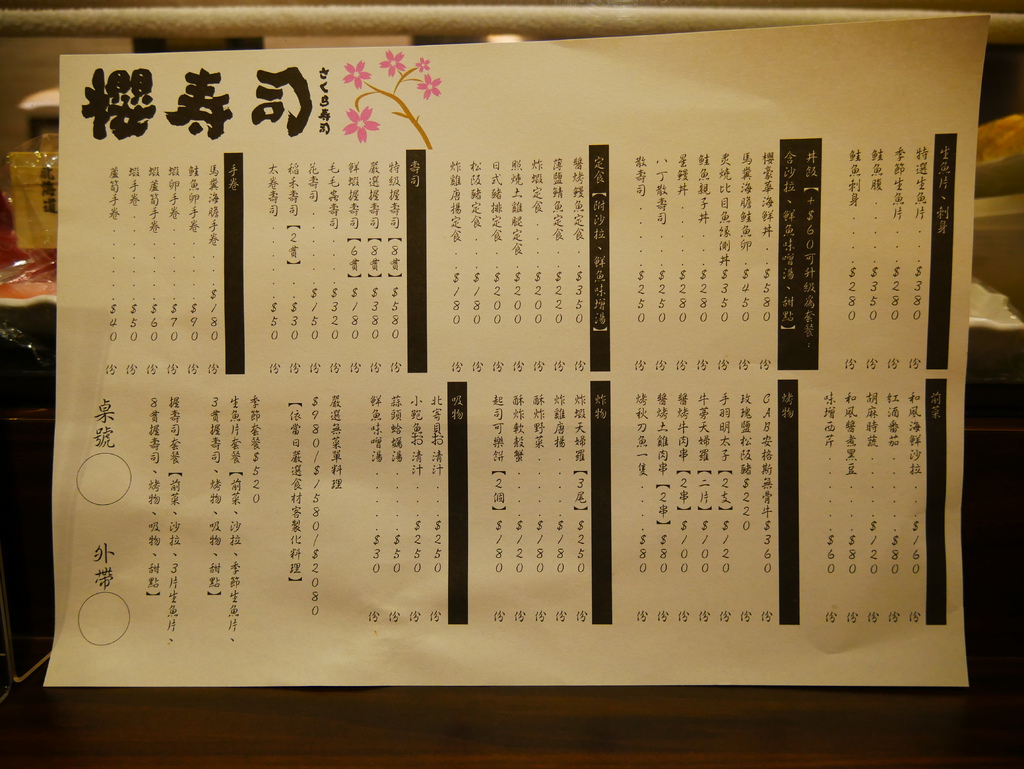 櫻壽司
さくら寿司
生魚片、刺身
特選生魚片....$380 份
季節生魚片....$280 份
鮭魚腹....$350 份
鮭魚刺身....$280 份
丼飯【+$60可升級為套餐：
含沙拉、鮮魚味噌湯、甜點】
櫻豪華海鮮丼.$580 份
馬糞海膽鮭魚卵.$450 份
炙燒比目魚緣側丼$350 份
鮭魚親子丼...$280 份
星鰻丼....$280 份
八丁散壽司...$250 份
散壽司....$250 份
定食【附沙拉、鮮魚味增湯】
醬烤鰻魚定食..$350 份
薄鹽鯖魚定食..$220 份
炸蝦定食....$220 份
照燒土雞腿定食.$200 份
日式豬排定食..$200 份
松阪豬定食...$180 份
炸雞唐揚定食..$180 份
壽司
特級握壽司【8貫】$580 份
嚴選握壽司【8貫】$380 份
鮮蝦握壽司【6貫】$180 份
毛毛蟲壽司...$320 份
花壽司.....$150 份
稻禾壽司【2貫】.$30 份
太卷壽司....$50 份
手卷
馬糞海膽手卷..$180 份
鮭魚卵手卷...$90 份
蝦卵手卷....$70 份
蝦蘆筍手卷...$60 份
蝦手卷.....$50 份
蘆筍手卷....$40 份
前菜
和風海鮮沙拉..$160 份
紅酒番茄....$80 份
胡麻時蔬....$120 份
和風醬煮黑豆..$80 份
味增西芹....$60 份
烤物
CAB安格斯無骨牛$360 份
玫瑰鹽松阪豬$220 份
手羽明太子【2支】$120 份
牛蒡天婦羅【二片】$100 份
醬烤牛肉串【2串】$100 份
醬烤土雞肉串【2串】$80 份
烤秋刀魚一隻...$80 份
炸物
炸蝦天婦羅【3尾】$250 份
炸雞唐揚....$180 份
酥炸野菜....$180 份
酥炸軟殼蟹...$120 份
起司可樂餅【2個】$180 份
吸物
北寄貝お清汁..$250 份
小鮑魚お清汁..$250 份
蒜頭蛤蠣湯...$50 份
鮮魚味噌湯...$30 份
嚴選無菜單料理
$980/$1580/$2080
【依當日嚴選食材客製化料理】
季節套餐$520
生魚片套餐【前菜、沙拉、季節生魚片、
3貫握壽司、烤物、吸物、甜點】
握壽司套餐【前菜、沙拉、3片生魚片、
8貫握壽司、烤物、吸物、甜點】
桌號
外帶
北海道